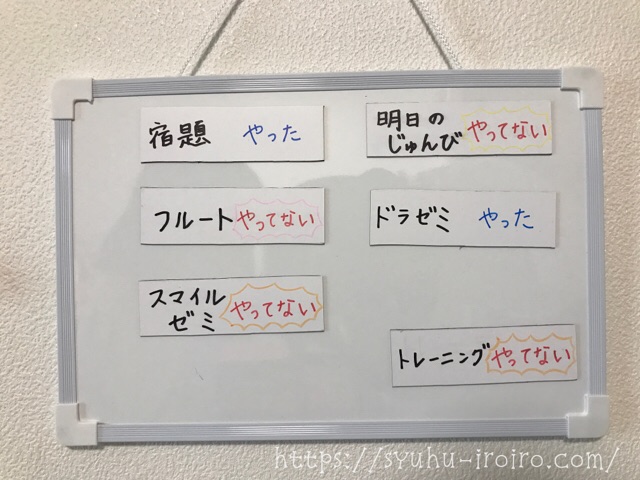 宿題 やった
明日の
じゅんび やってない
フルート やってない
ドラゼミ やった
スマイル
ゼミ やってない
トレーニング やってない
https://syuhu-iroiro.com/